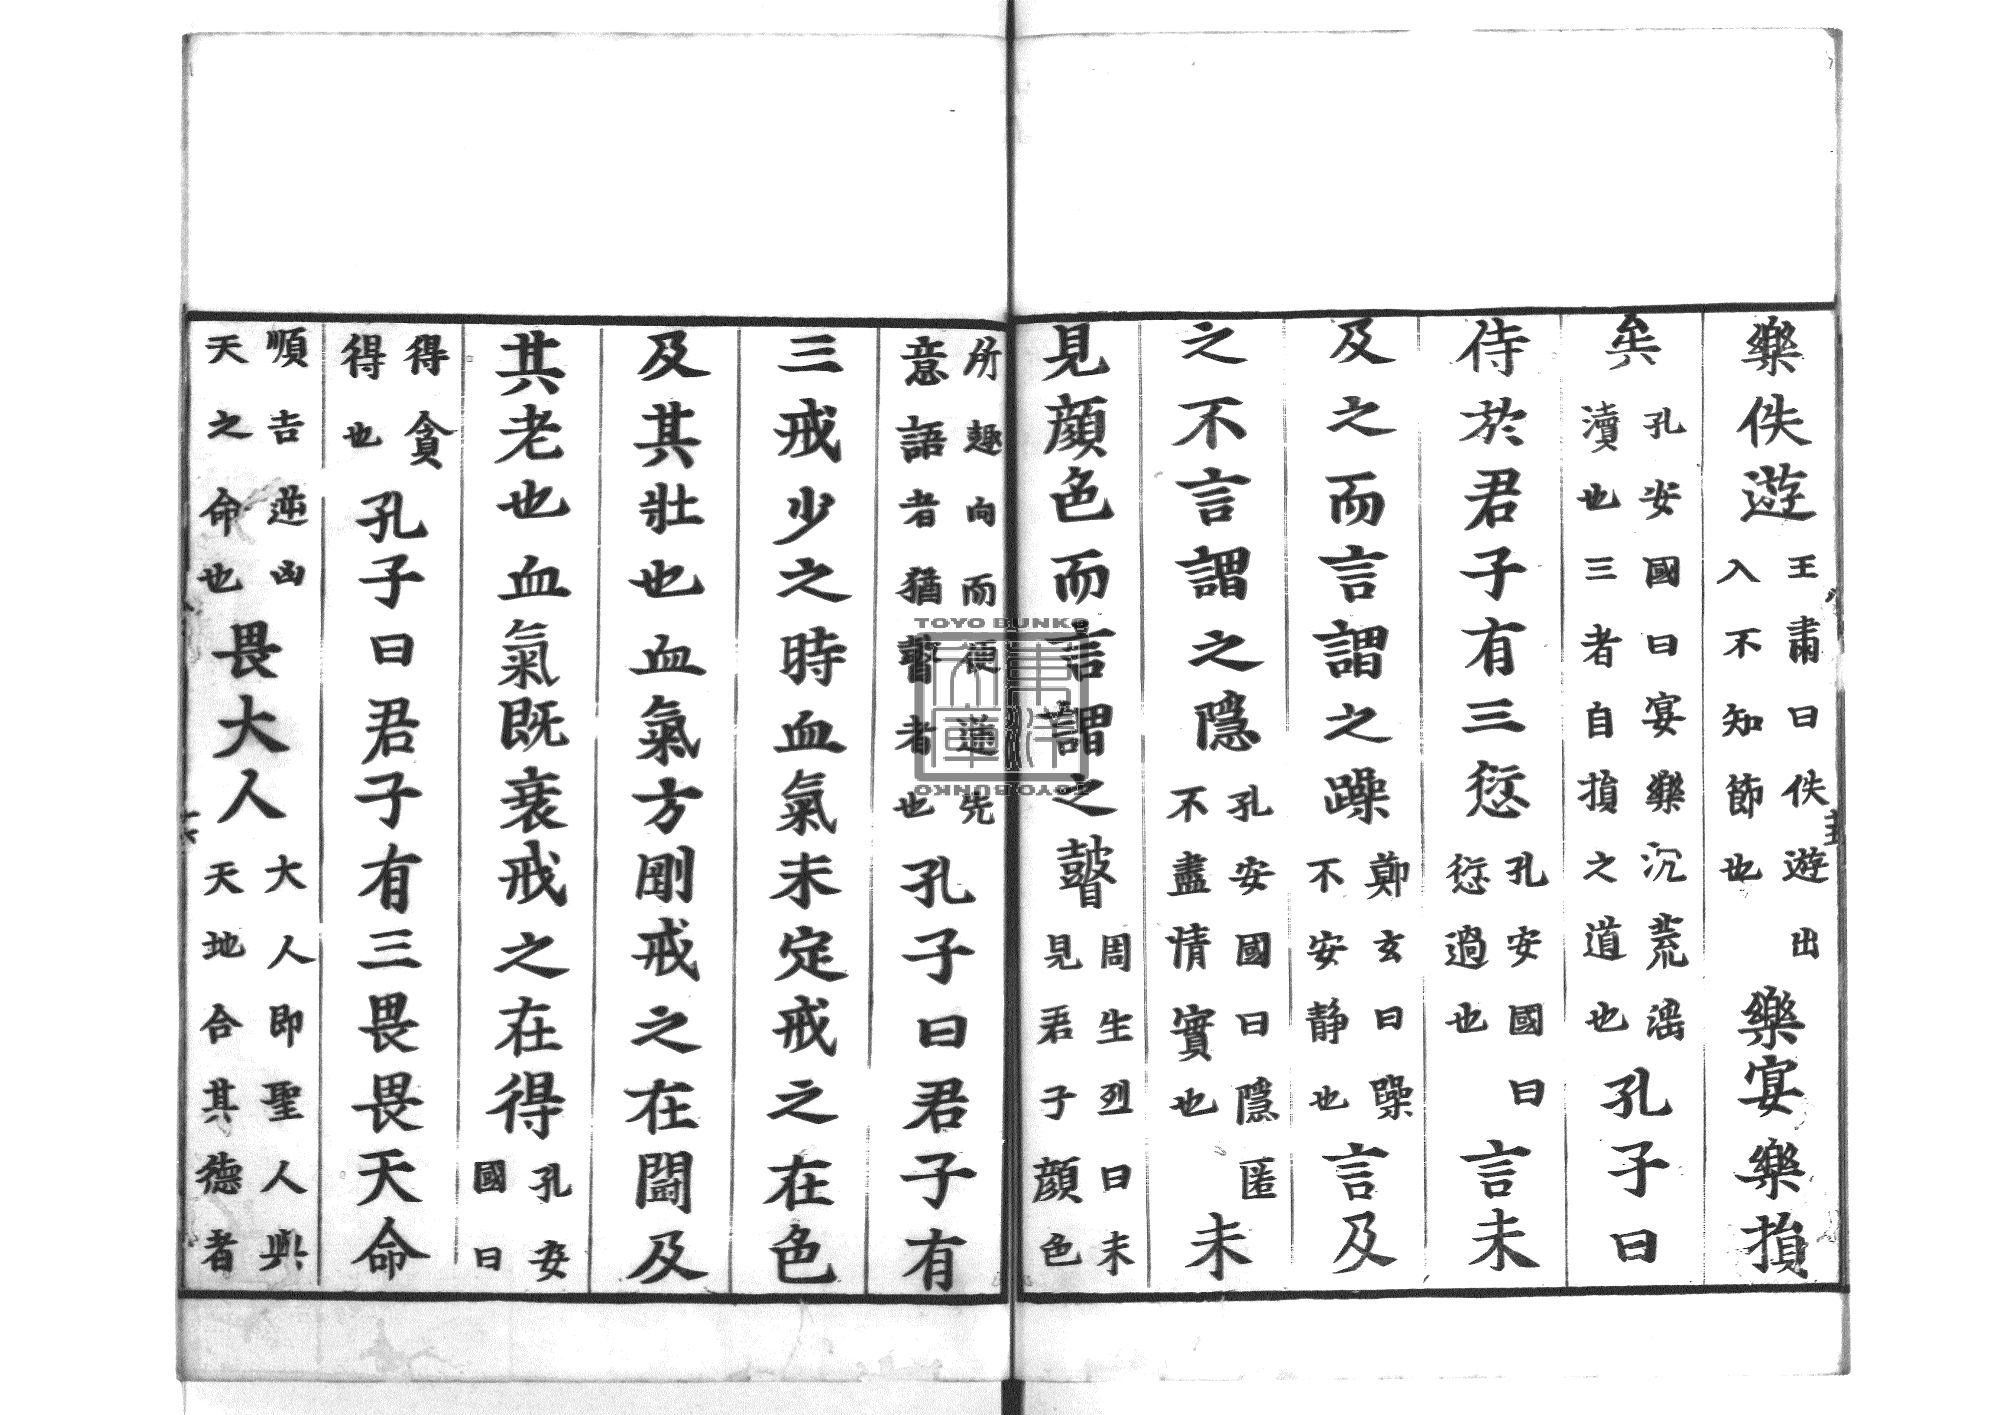 樂佚遊王肅曰佚遊出入不知節也樂宴樂損
矣孔安國曰宴樂沉荒滛瀆也三者自損之道也孔子曰
侍於君子有三愆孔安國曰愆過也言未
及之而言謂之躁鄭玄曰躁不安静也言及
之不言謂之隱孔安國曰隱匿不盡情實也未
見顔色而言謂之瞽周生烈曰未見君子顔色
所趣向而便逆先意語者猶瞽者也孔子曰君子有
三戒少之時血氣未定戒之在色
及其壮也血氣方剛戒之在闘及
其老也血氣既衰戒之在得孔安國曰
得貪得也孔子曰君子有三畏畏天命
順吉逆凶天之命也畏大人大人即聖人與天地合其德者
TOYO BUNKO
東洋文庫
TOYO BUNKO